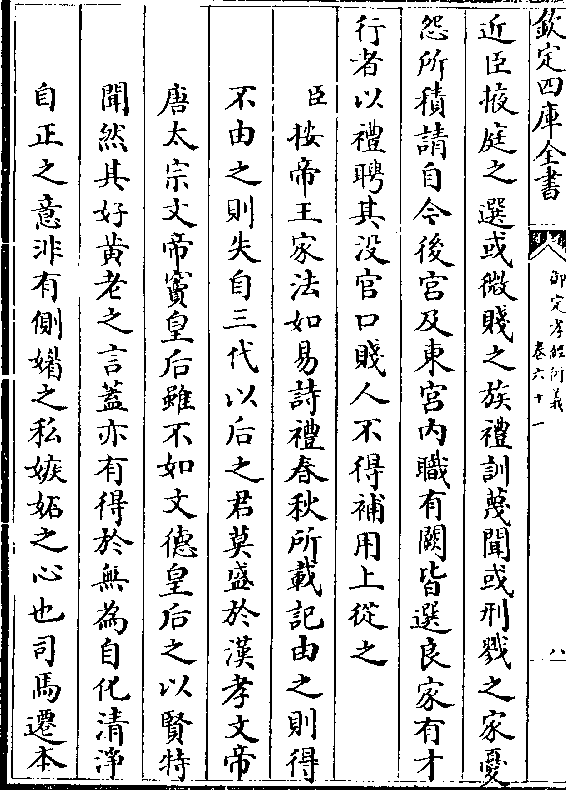 欽定四庫全書
御定孝經衍義
卷六十一
八
近臣掖庭之選或微賤之族禮訓蔑聞或刑戮之家憂
怨所積請自今後宮及東宮內職有闕皆選良家有才
行者以禮聘其没官口賤人不得補用上從之
臣按帝王家法如易詩禮春秋所載記由之則得
不由之則失自三代以后之君莫盛於漢孝文帝
唐太宗文帝竇皇后雖不如文德皇后之以賢特
聞然其好黄老之言蓋亦有得於無為自化清浄
自正之意非有側媢之私嫉妬之心也司馬遷本